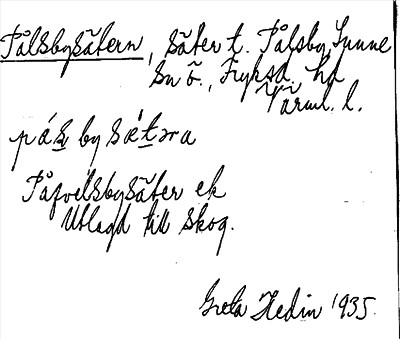 Pålsbysätern, säter t. Pålsby, Sunne
sn ö., Fryksd. hd
Värml. l.
pá̱s̱ by sæ̀ṯəra
Påfvelsbysäter ek
Utlagd till skog.
Greta Hedin 1935.